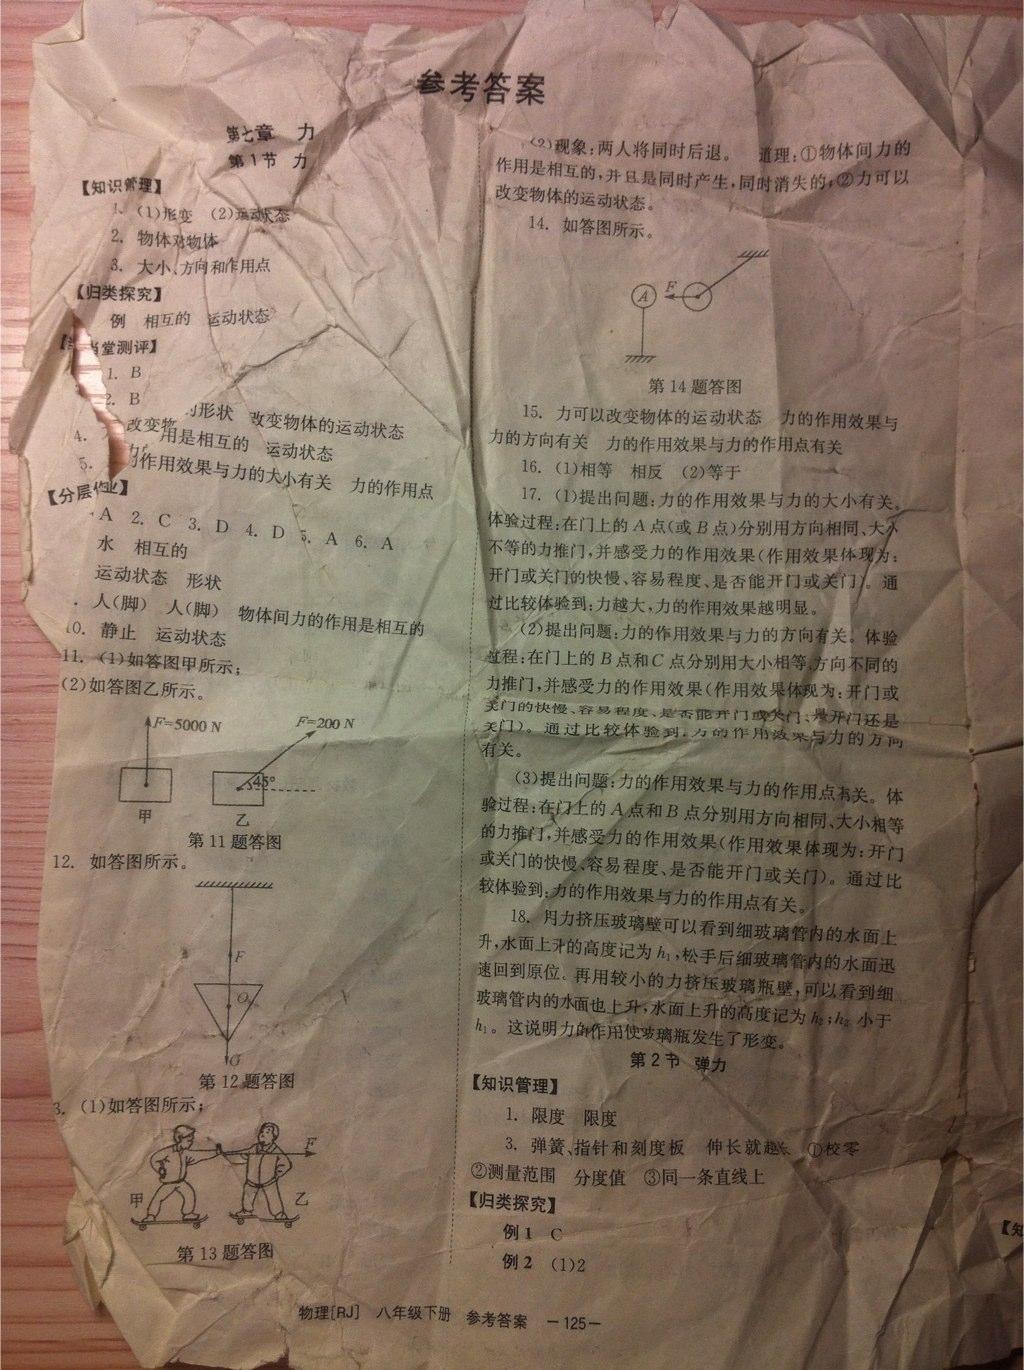 参考答案
第七章 力
第1节 力
【知识管理】
1. (1)形变 (2)运动状态
2. 物体对物体
3. 大小、方向和作用点
【归类探究】
例 相互的 运动状态
当堂测评】
1. B
2. B
改变物 的形状 改变物体的运动状态
4. 力 用是相互的 运动状态
5. 力的作用效果与力的大小有关 力的作用点
【分层作业】
A 2. C 3. D 4. D 5. A 6. A
水 相互的
运动状态 形状
人(脚) 人(脚) 物体间力的作用是相互的
10. 静止 运动状态
11. (1)如答图甲所示;
(2)如答图乙所示。
F=5000 N F=200 N
45°
甲 乙
第11题答图
12. 如答图所示。
F
O
G
第12题答图
3. (1)如答图所示;
F
甲 乙
第13题答图
(2)现象:两人将同时后退。 道理:①物体间力的
作用是相互的,并且是同时产生,同时消失的,②力可以
改变物体的运动状态。
14. 如答图所示。
A F
第14题答图
15. 力可以改变物体的运动状态 力的作用效果与
力的方向有关 力的作用效果与力的作用点有关
16. (1)相等 相反 (2)等于
17. (1)提出问题:力的作用效果与力的大小有关。
体验过程:在门上的A点(或B点)分别用方向相同、大小
不等的力推门,并感受力的作用效果(作用效果体现为:
开门或关门的快慢、容易程度、是否能开门或关门)。通
过比较体验到:力越大,力的作用效果越明显。
(2)提出问题:力的作用效果与力的方向有关。体验
过程:在门上的B点和C点分别用大小相等,方向不同的
力推门,并感受力的作用效果(作用效果体现为:开门或
关门的快慢、容易程度、是否能开门或关门、是开门还是
关门)。通过比较体验到:力的作用效果与力的方向
有关。
(3)提出问题:力的作用效果与力的作用点有关。体
验过程:在门上的A点和B点分别用方向相同、大小相等
的力推门,并感受力的作用效果(作用效果体现为:开门
或关门的快慢、容易程度、是否能开门或关门)。通过比
较体验到:力的作用效果与力的作用点有关。
18. 用力挤压玻璃壁可以看到细玻璃管内的水面上
升,水面上升的高度记为h₁,松手后细玻璃管内的水面迅
速回到原位。再用较小的力挤压玻璃瓶壁,可以看到细
玻璃管内的水面也上升,水面上升的高度记为h₂;h₂小于
h₁。这说明力的作用使玻璃瓶发生了形变。
第2节 弹力
【知识管理】
1. 限度 限度
3. 弹簧、指针和刻度板 伸长就越长 ①校零
②测量范围 分度值 ③同一条直线上
【归类探究】
例1 C
例2 (1)2
【知
物理[RJ] 八年级下册 参考答案 —125—